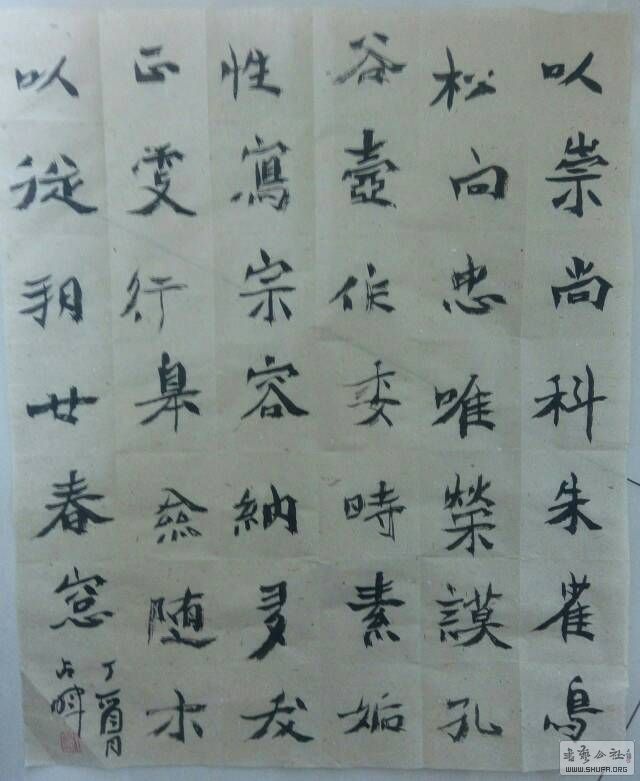 以崇尚科朱雀鳥
松向忠唯榮謨孔
谷壺作委時素姤
性寫宗容納多我
正受行皐慾随木
以從翔廿春窓
丁酉月
占暐
書藝公社
WWW.SHUFA.ORG